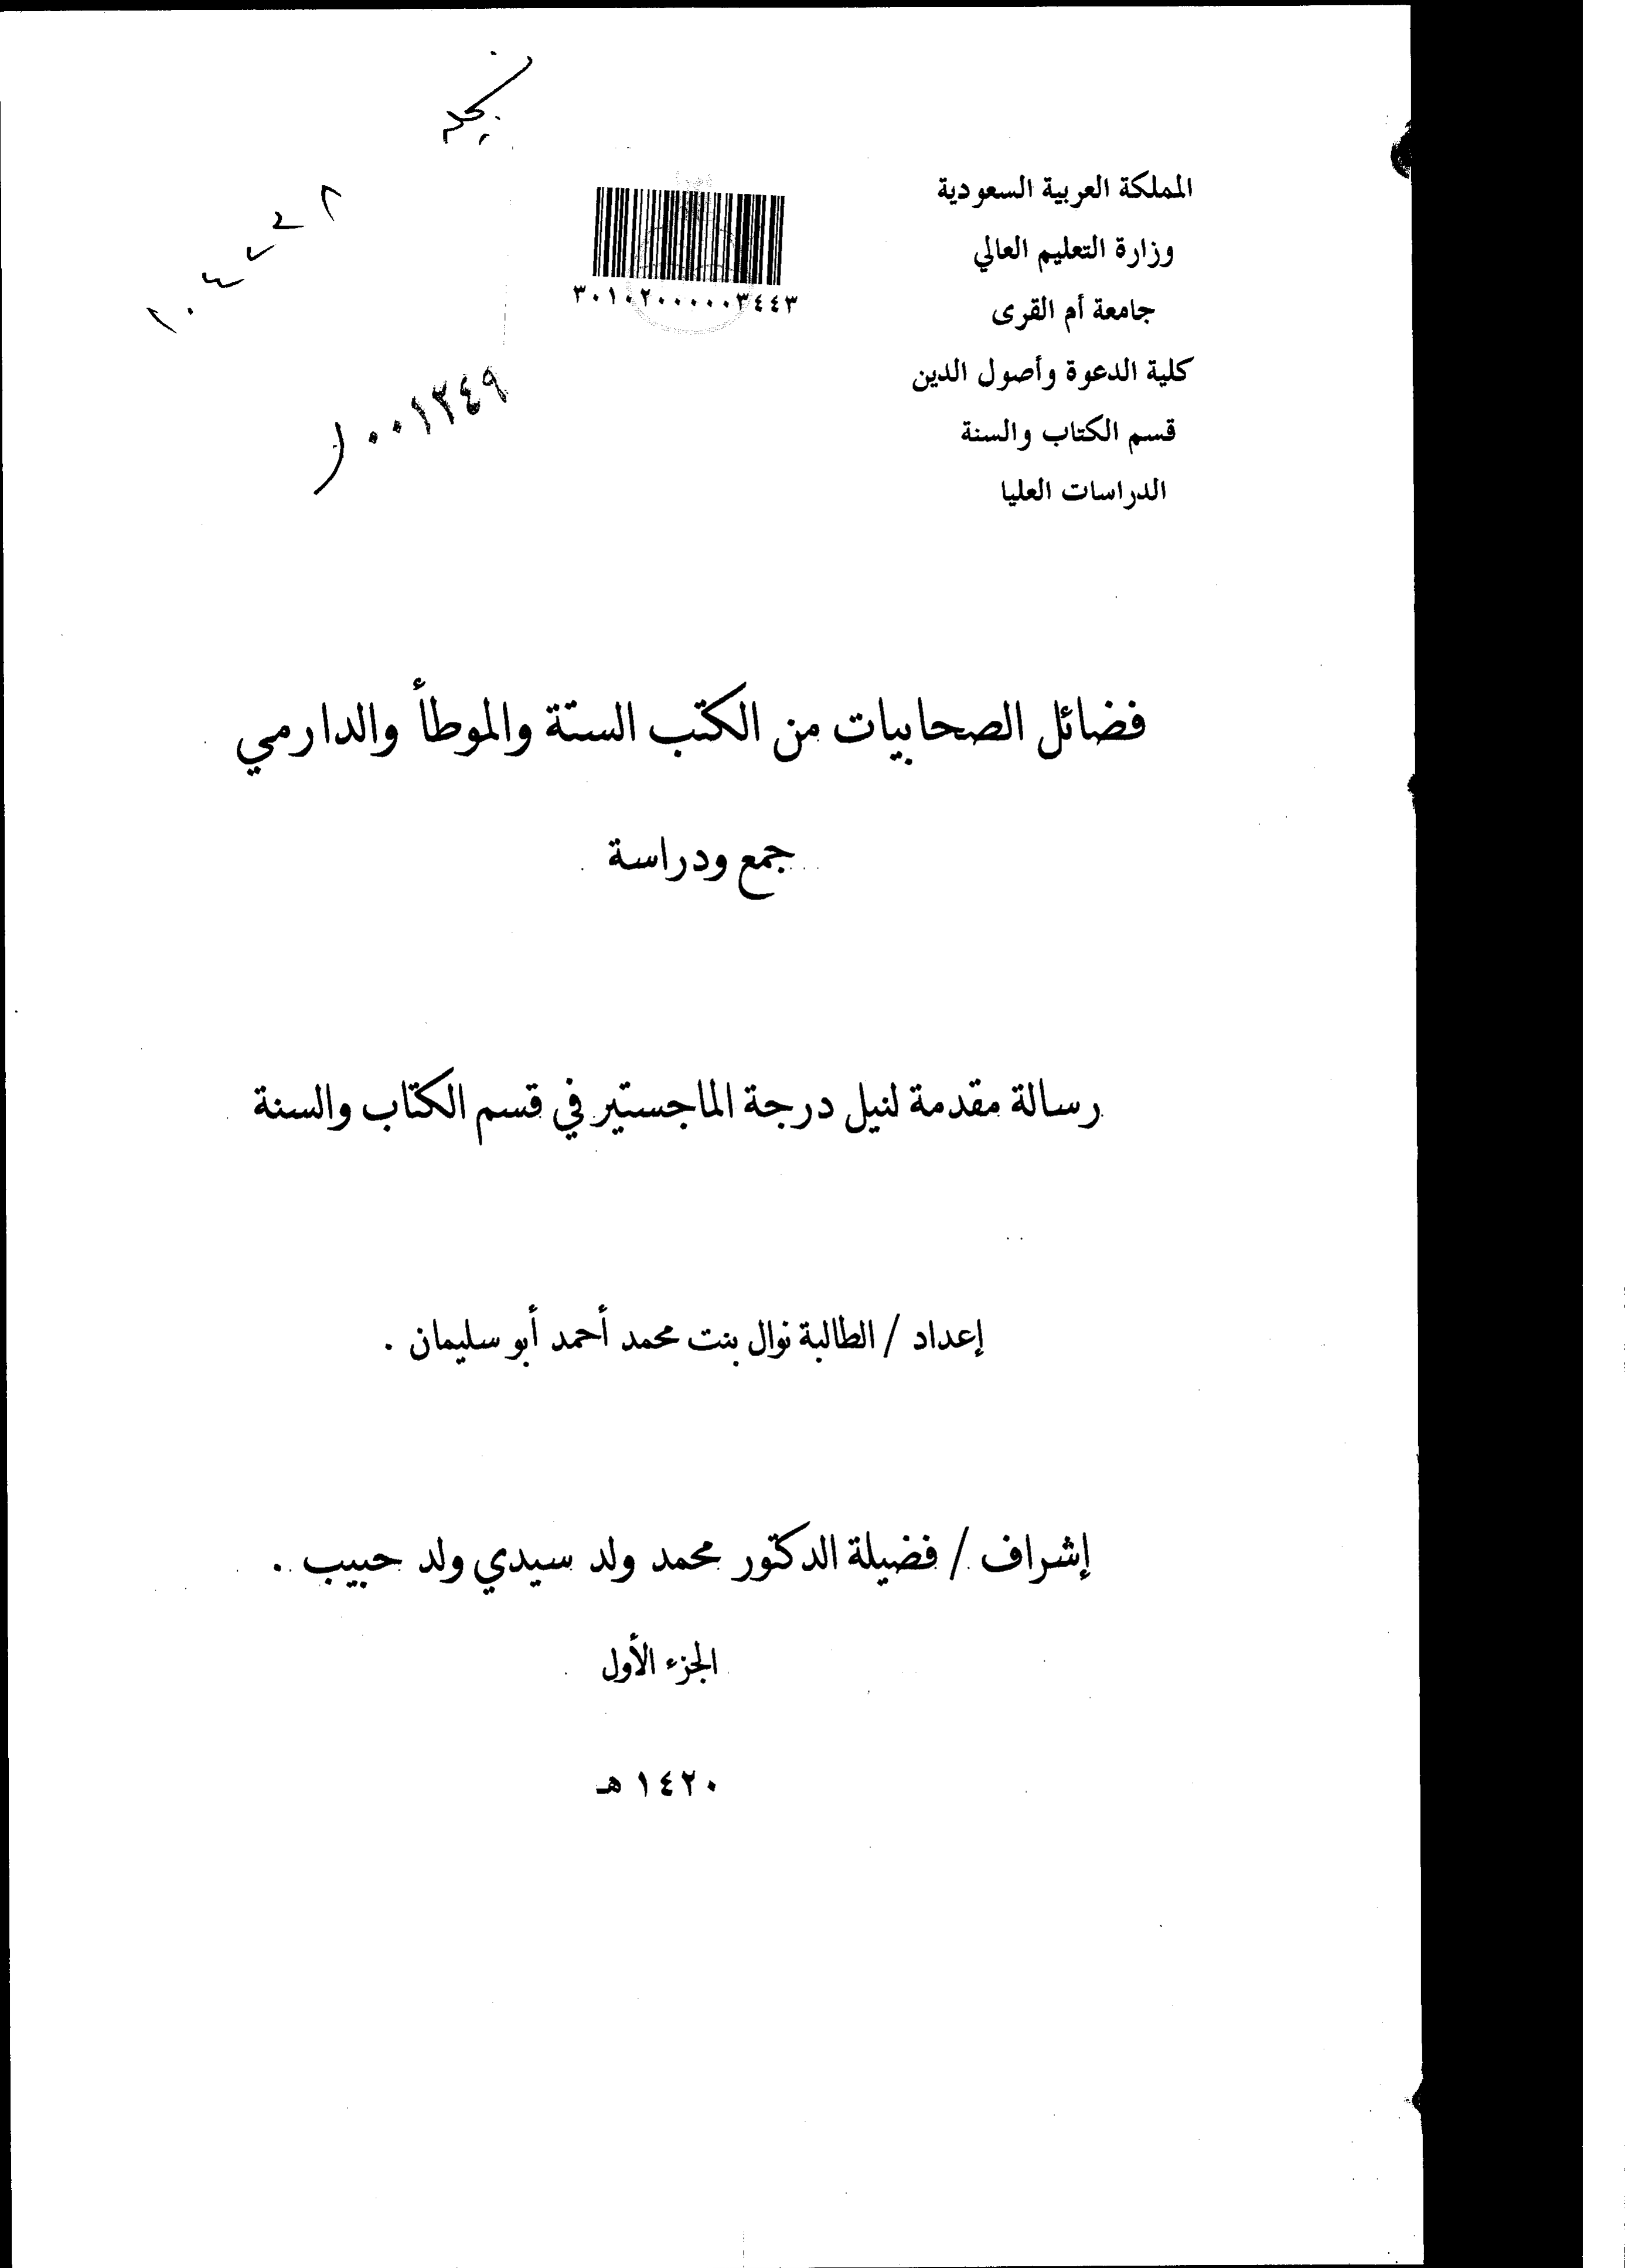 المملكة العربية السعودية
وزارة التعليم العالي
جامعة أم القرى
كلية الدعوة وأصول الدين
قسم الكتاب والسنة
الدراسات العليا
٣٠١٠٢٠٠٠٠٠٣٤٤٣
٠٠١٣٤٩
فضائل الصحابيات من الكتب الستة والموطأ والدارمي
جمع ودراسة
رسالة مقدمة لنيل درجة الماجستير في قسم الكتاب والسنة
إعداد / الطالبة نوال بنت محمد أحمد أبو سليمان .
إشراف / فضيلة الدكتور محمد ولد سيدي ولد حبيب .
الجزء الأول
١٤٢٠ هـ